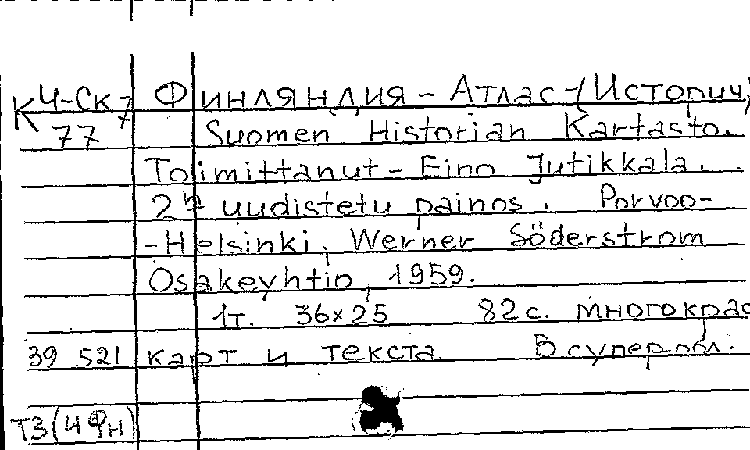 КЧ-Ск7 Финляндия - Атлас-(Историч,
К77 Suomen Historian Kartasto.
Tolimittanut - Eino Jutikkala.
2ⁿ uudistetu painos. Porvoo-
-Helsinki, Werner Söderstrom
Osakeyhtio, 1959.
1т. 36x25 82с. многокрас
39 521 карт и текста В супер обл.
Т3(4Фн)